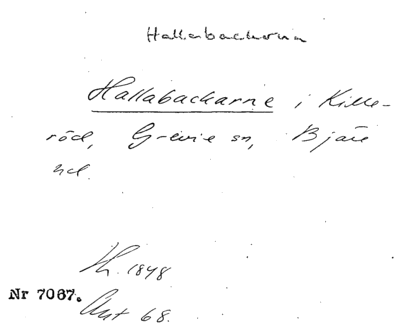 Hallabackarna
Hallabackarne i Kille-
röd, Grevie sn, Bjäre
hd.
Lh. 1848
Nr 7067.
Ant 68.